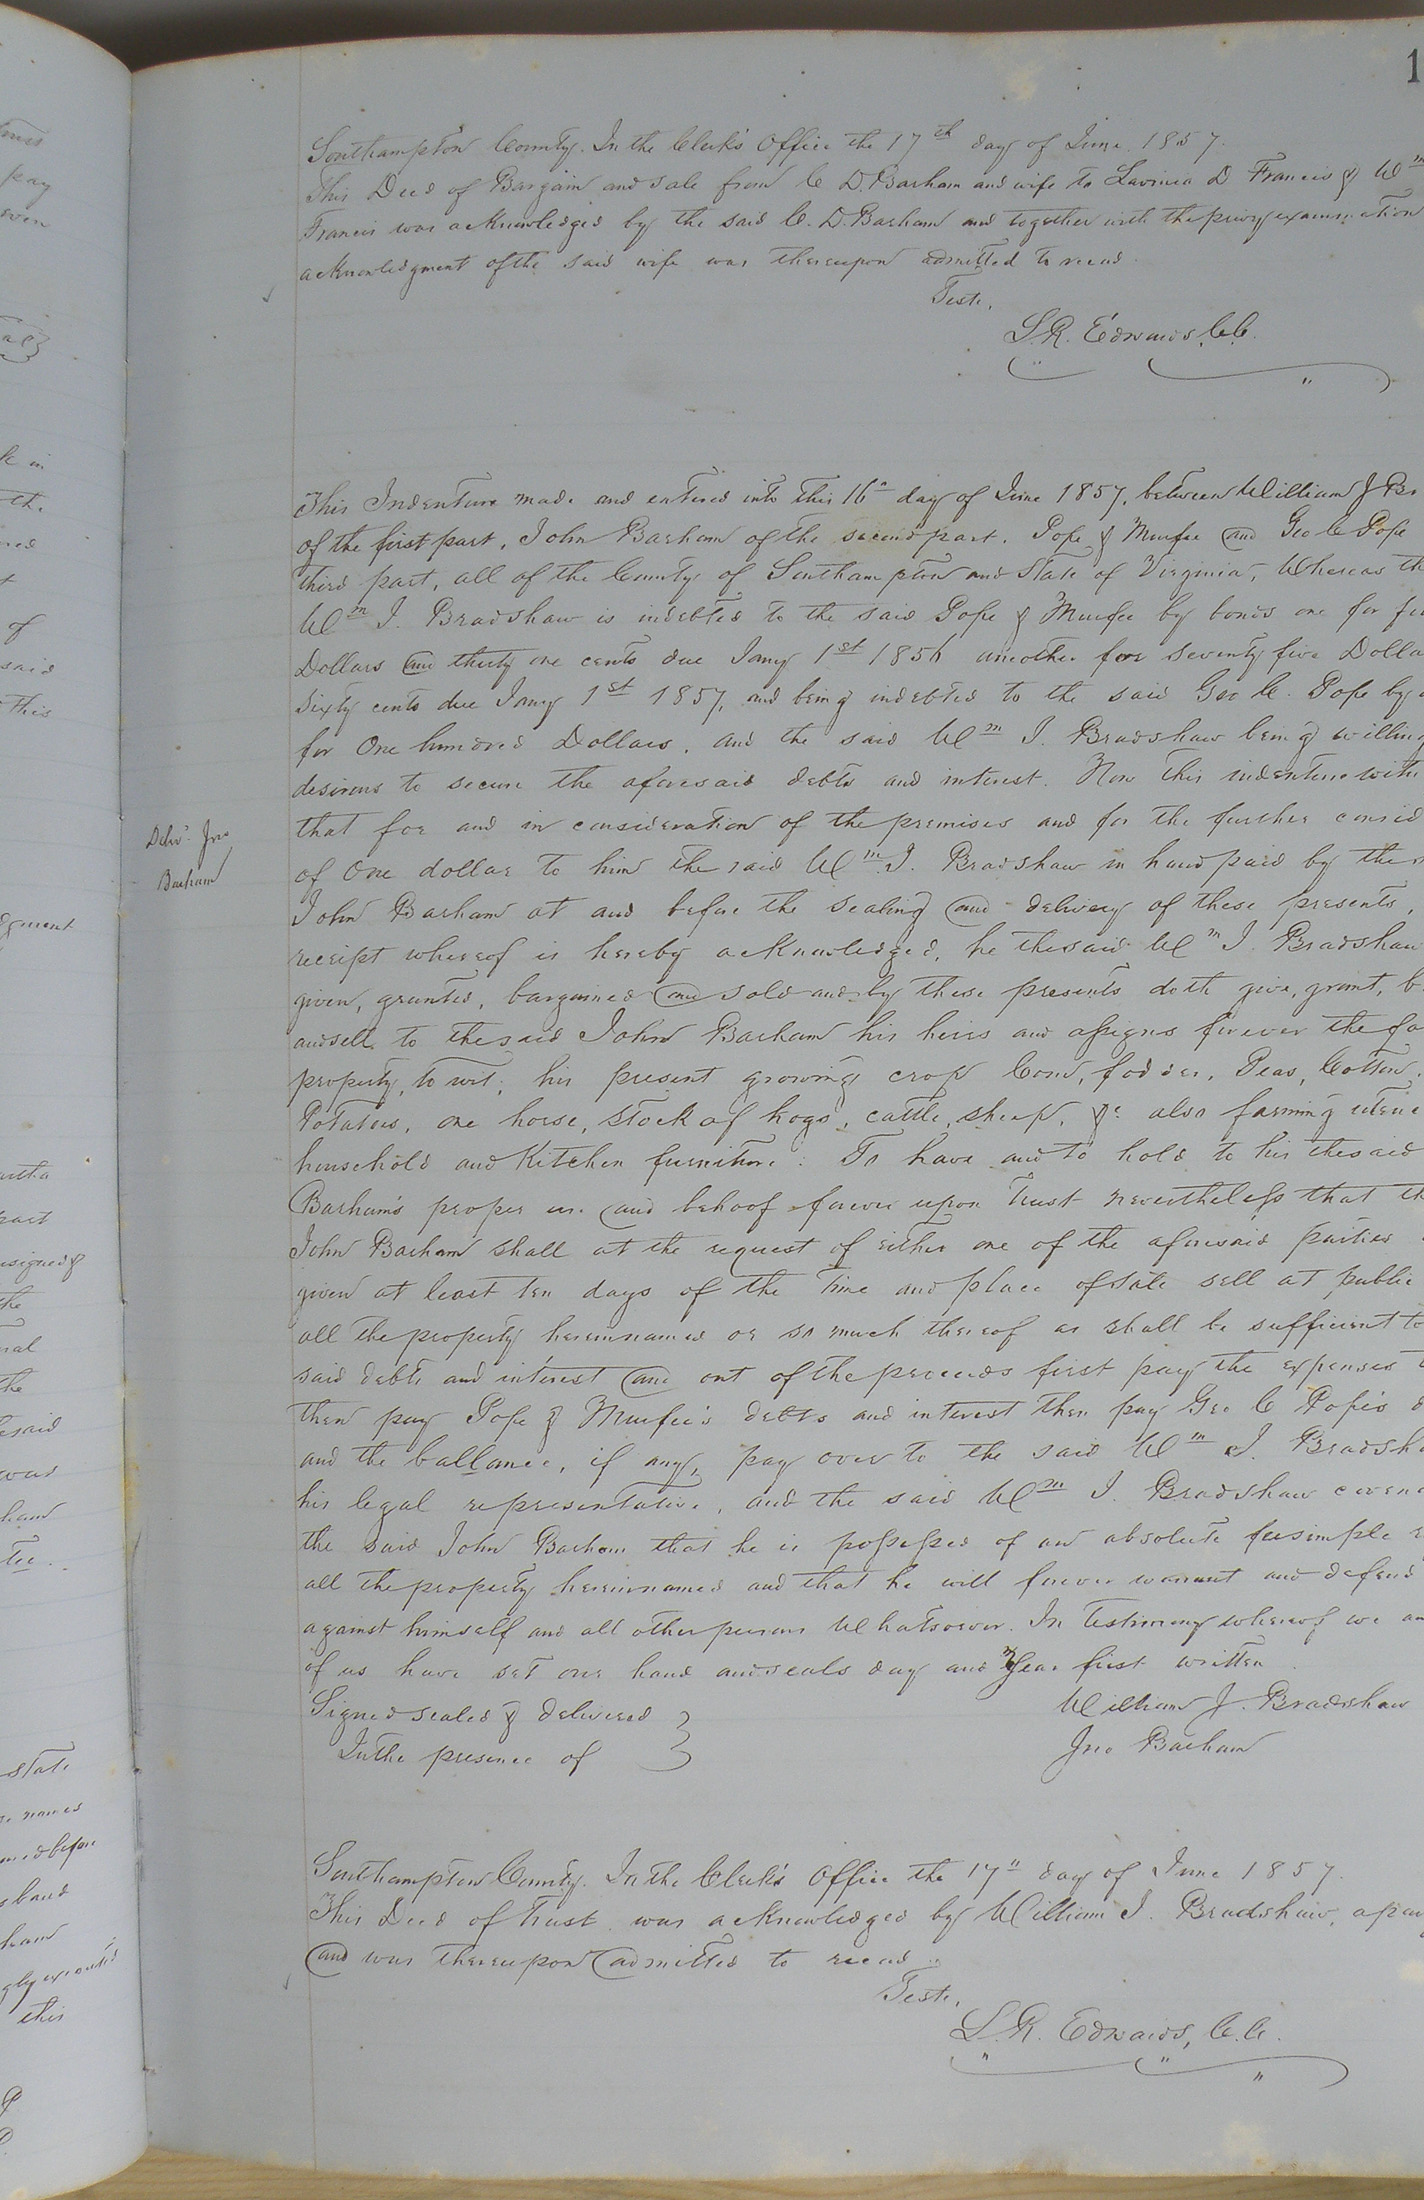 1
Southampton County. In the Clerk's Office the 17th day of June 1857.
This Deed of Bargain and sale from C. D. Barham and wife to Lavinia D. Francis & Wm
Francis was acknowledged by the said C. D. Barham and together with the privy examination
acknowledgment of the said wife was thereupon admitted to record.
Teste,
L. R. Edwards, C.C.
This Indenture made and entered into this 16" day of June 1857, between William J Br
of the first part, John Barham of the second part, Pope & Murfee and Geo C Pope
third part, all of the County of Southampton and State of Virginia, Whereas th
Wm J. Bradshaw is indebted to the said Pope & Murfee by bonds one for
Dollars and thirty one cents due Jany 1st 1856 aneother for seventy five Dolla
Sixty cents due Jany 1st 1857, and being indebted to the said Geo C. Pope by
for One hundred Dollars, and the said Wm J. Bradshaw being willing
desirous to secure the aforesaid debts and interest. Now this indenture with
that for and in consideration of the premises and for the further consid
of One dollar to him the said Wm J. Bradshaw in hand paid by the
Delivd. Jno
Barham
John Barham at and before the sealing and delivery of these presents,
receipt whereof is hereby acknowledged, he the said Wm J. Bradshaw
given, granted, bargained and sold and by these presents doth give, grant, b
and sell to the said John Barham his heirs and assigns forever the fo
property, to wit; his present growing crop Corn, fodder, Peas, Cotton,
Potatoes, one horse, stock of hogs, cattle, sheep, &c also farming utens
household and Kitchen furniture: To have and to hold to his the said
Barham's proper use and behoof forever upon Trust nevertheless that th
John Barham shall at the request of either one of the aforesaid parties
given at least ten days of the time and place of sale sell at public
all the property hereinnamed or so much thereof as shall be sufficient to
said debts and interest and out of the proceeds first pay the expenses
then pay Pope & Murfee's debts and interest then pay Geo C Pope's d
and the ballance, if any, pay over to the said Wm J. Bradsh
his legal representative, and the said Wm J. Bradshaw coven
the said John Barham that he is possessed of an absolute feesimple
all the property hereinnamed and that he will forever warrant and defend
against himself and all other persons Whatsoever. In Testimony whereof we
of us have set our hand and seals day and Year first written
Signed sealed & delivered
In the presence of
William J. Bradshaw
Jno Barham
Southampton County. In the Clerk's Office the 17" day of June 1857.
This Deed of Trust was acknowledged by William J. Bradshaw, a par
and was thereupon admitted to record.
Teste,
L. R. Edwards, C.C.